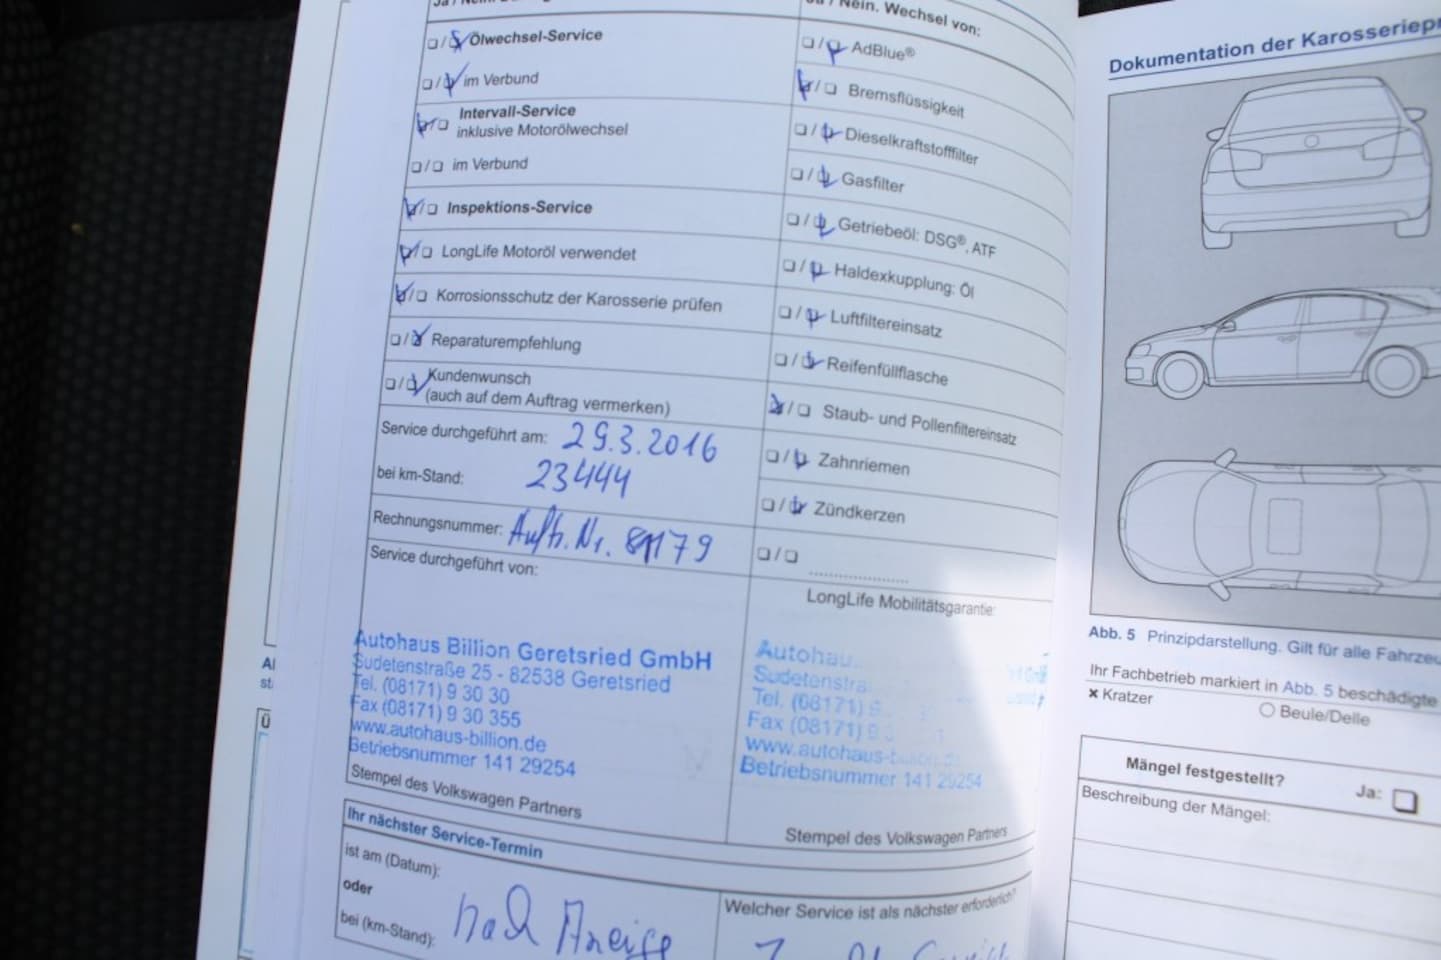 Ölwechsel-Service
im Verbund
Intervall-Service
inklusive Motorölwechsel
im Verbund
Inspektions-Service
LongLife Motoröl verwendet
Korrosionsschutz der Karosserie prüfen
Reparaturempfehlung
Kundenwunsch
(auch auf dem Auftrag vermerken)
Service durchgeführt am: 29.3.2016
bei km-Stand: 23444
Rechnungsnummer: Auftr. Nr. 81179
Service durchgeführt von:
Autohaus Billion Geretsried GmbH
Sudetenstraße 25 - 82538 Geretsried
Tel. (08171) 9 30 30
Fax (08171) 9 30 355
www.autohaus-billion.de
Betriebsnummer 141 29254
Stempel des Volkswagen Partners
Ja / Nein. Wechsel von:
AdBlue®
Bremsflüssigkeit
Dieselkraftstofffilter
Gasfilter
Getriebeöl: DSG®, ATF
Haldexkupplung: Öl
Luftfiltereinsatz
Reifenfüllflasche
Staub- und Pollenfiltereinsatz
Zahnriemen
Zündkerzen
LongLife Mobilitätsgarantie:
Autohau
Sudetenstra
Tel. (08171) 9
Fax (08171) 9 3
www.autohaus-billion.de
Betriebsnummer 141 29254
Stempel des Volkswagen Partners
Ihr nächster Service-Termin
ist am (Datum):
oder
bei (km-Stand):
nach Anzeige
Welcher Service ist als nächster erforderlich?
Dokumentation der Karosseriepr
Abb. 5 Prinzipdarstellung. Gilt für alle Fahrzeu
Ihr Fachbetrieb markiert in Abb. 5 beschädigte
× Kratzer
Beule/Delle
Mängel festgestellt? Ja:
Beschreibung der Mängel: